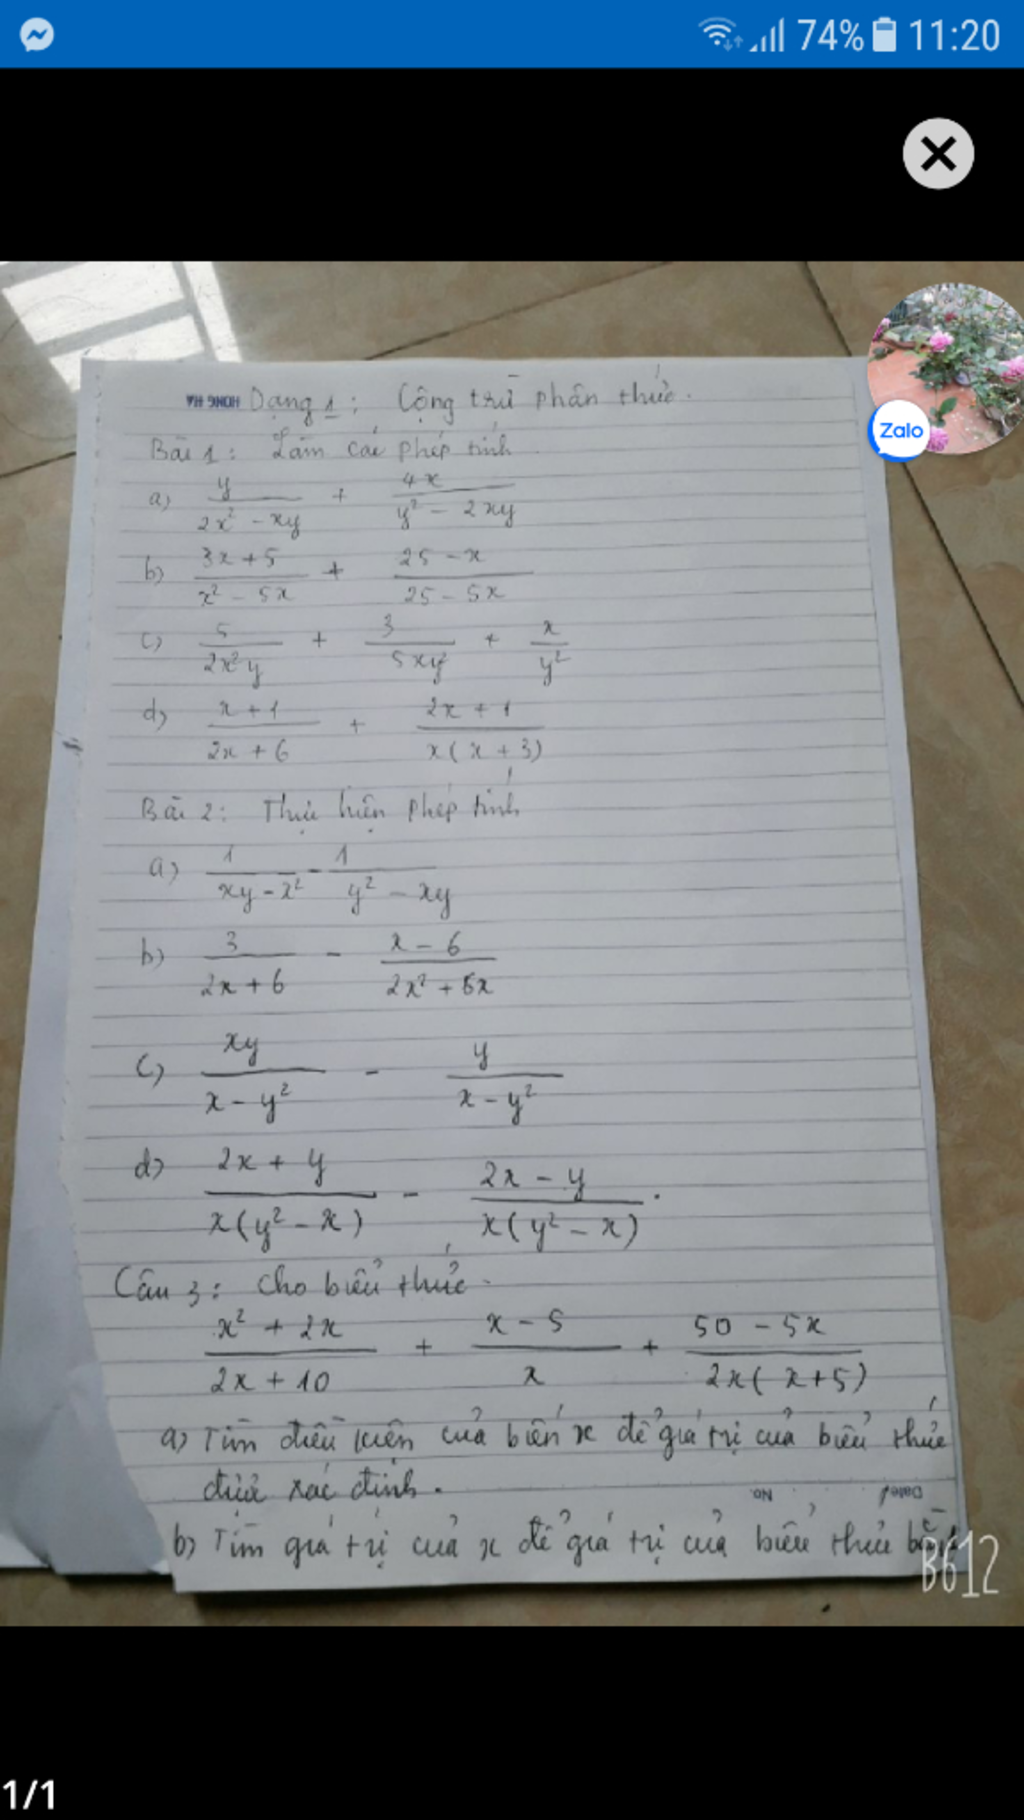 74% 11:20
Zalo
HONG HA Dạng 1 : Cộng trừ phân thức.
Bài 1 : Làm các phép tính
a) y/(2x² - xy) + 4x/(y² - 2xy)
b) (3x + 5)/(x² - 5x) + (25 - x)/(25 - 5x)
c) 5/(2x²y) + 3/(5xy²) + x/y²
d) (x + 1)/(2x + 6) + (2x + 1)/(x(x + 3))
Bài 2 : Thực hiện phép tính
a) 1/(xy - x²) - 1/(y² - xy)
b) 3/(2x + 6) - (x - 6)/(2x² + 6x)
c) xy/(x - y²) - y/(x - y²)
d) (2x + y)/(x(y² - x)) - (2x - y)/(x(y² - x)).
Câu 3 : Cho biểu thức.
(x² + 2x)/(2x + 10) + (x - 5)/x + (50 - 5x)/(2x(x + 5))
a) Tìm điều kiện của biến x để giá trị của biểu thức
được xác định.
No. Date
b) Tìm giá trị của x để giá trị của biểu thức
B612
1/1